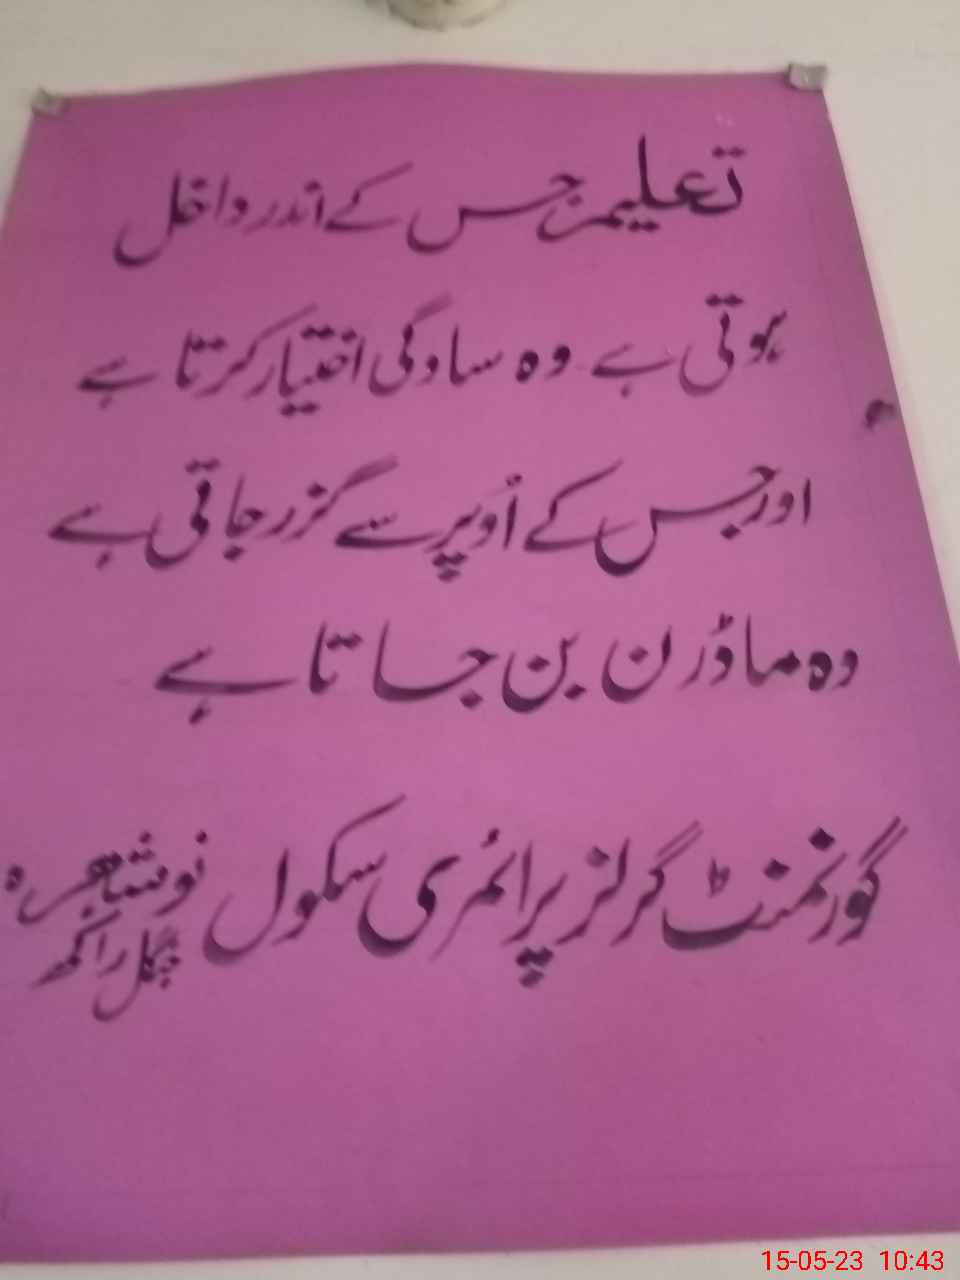 تعلیم جس کے اندر داخل
ہوتی ہے وہ سادگی اختیار کرتا ہے
اور جس کے اُوپر سے گزر جاتی ہے
وہ ماڈرن بن جاتا ہے
گورنمنٹ گرلز پرائمری سکول نوشہرہ
جنگل راکھ
15-05-23 10:43